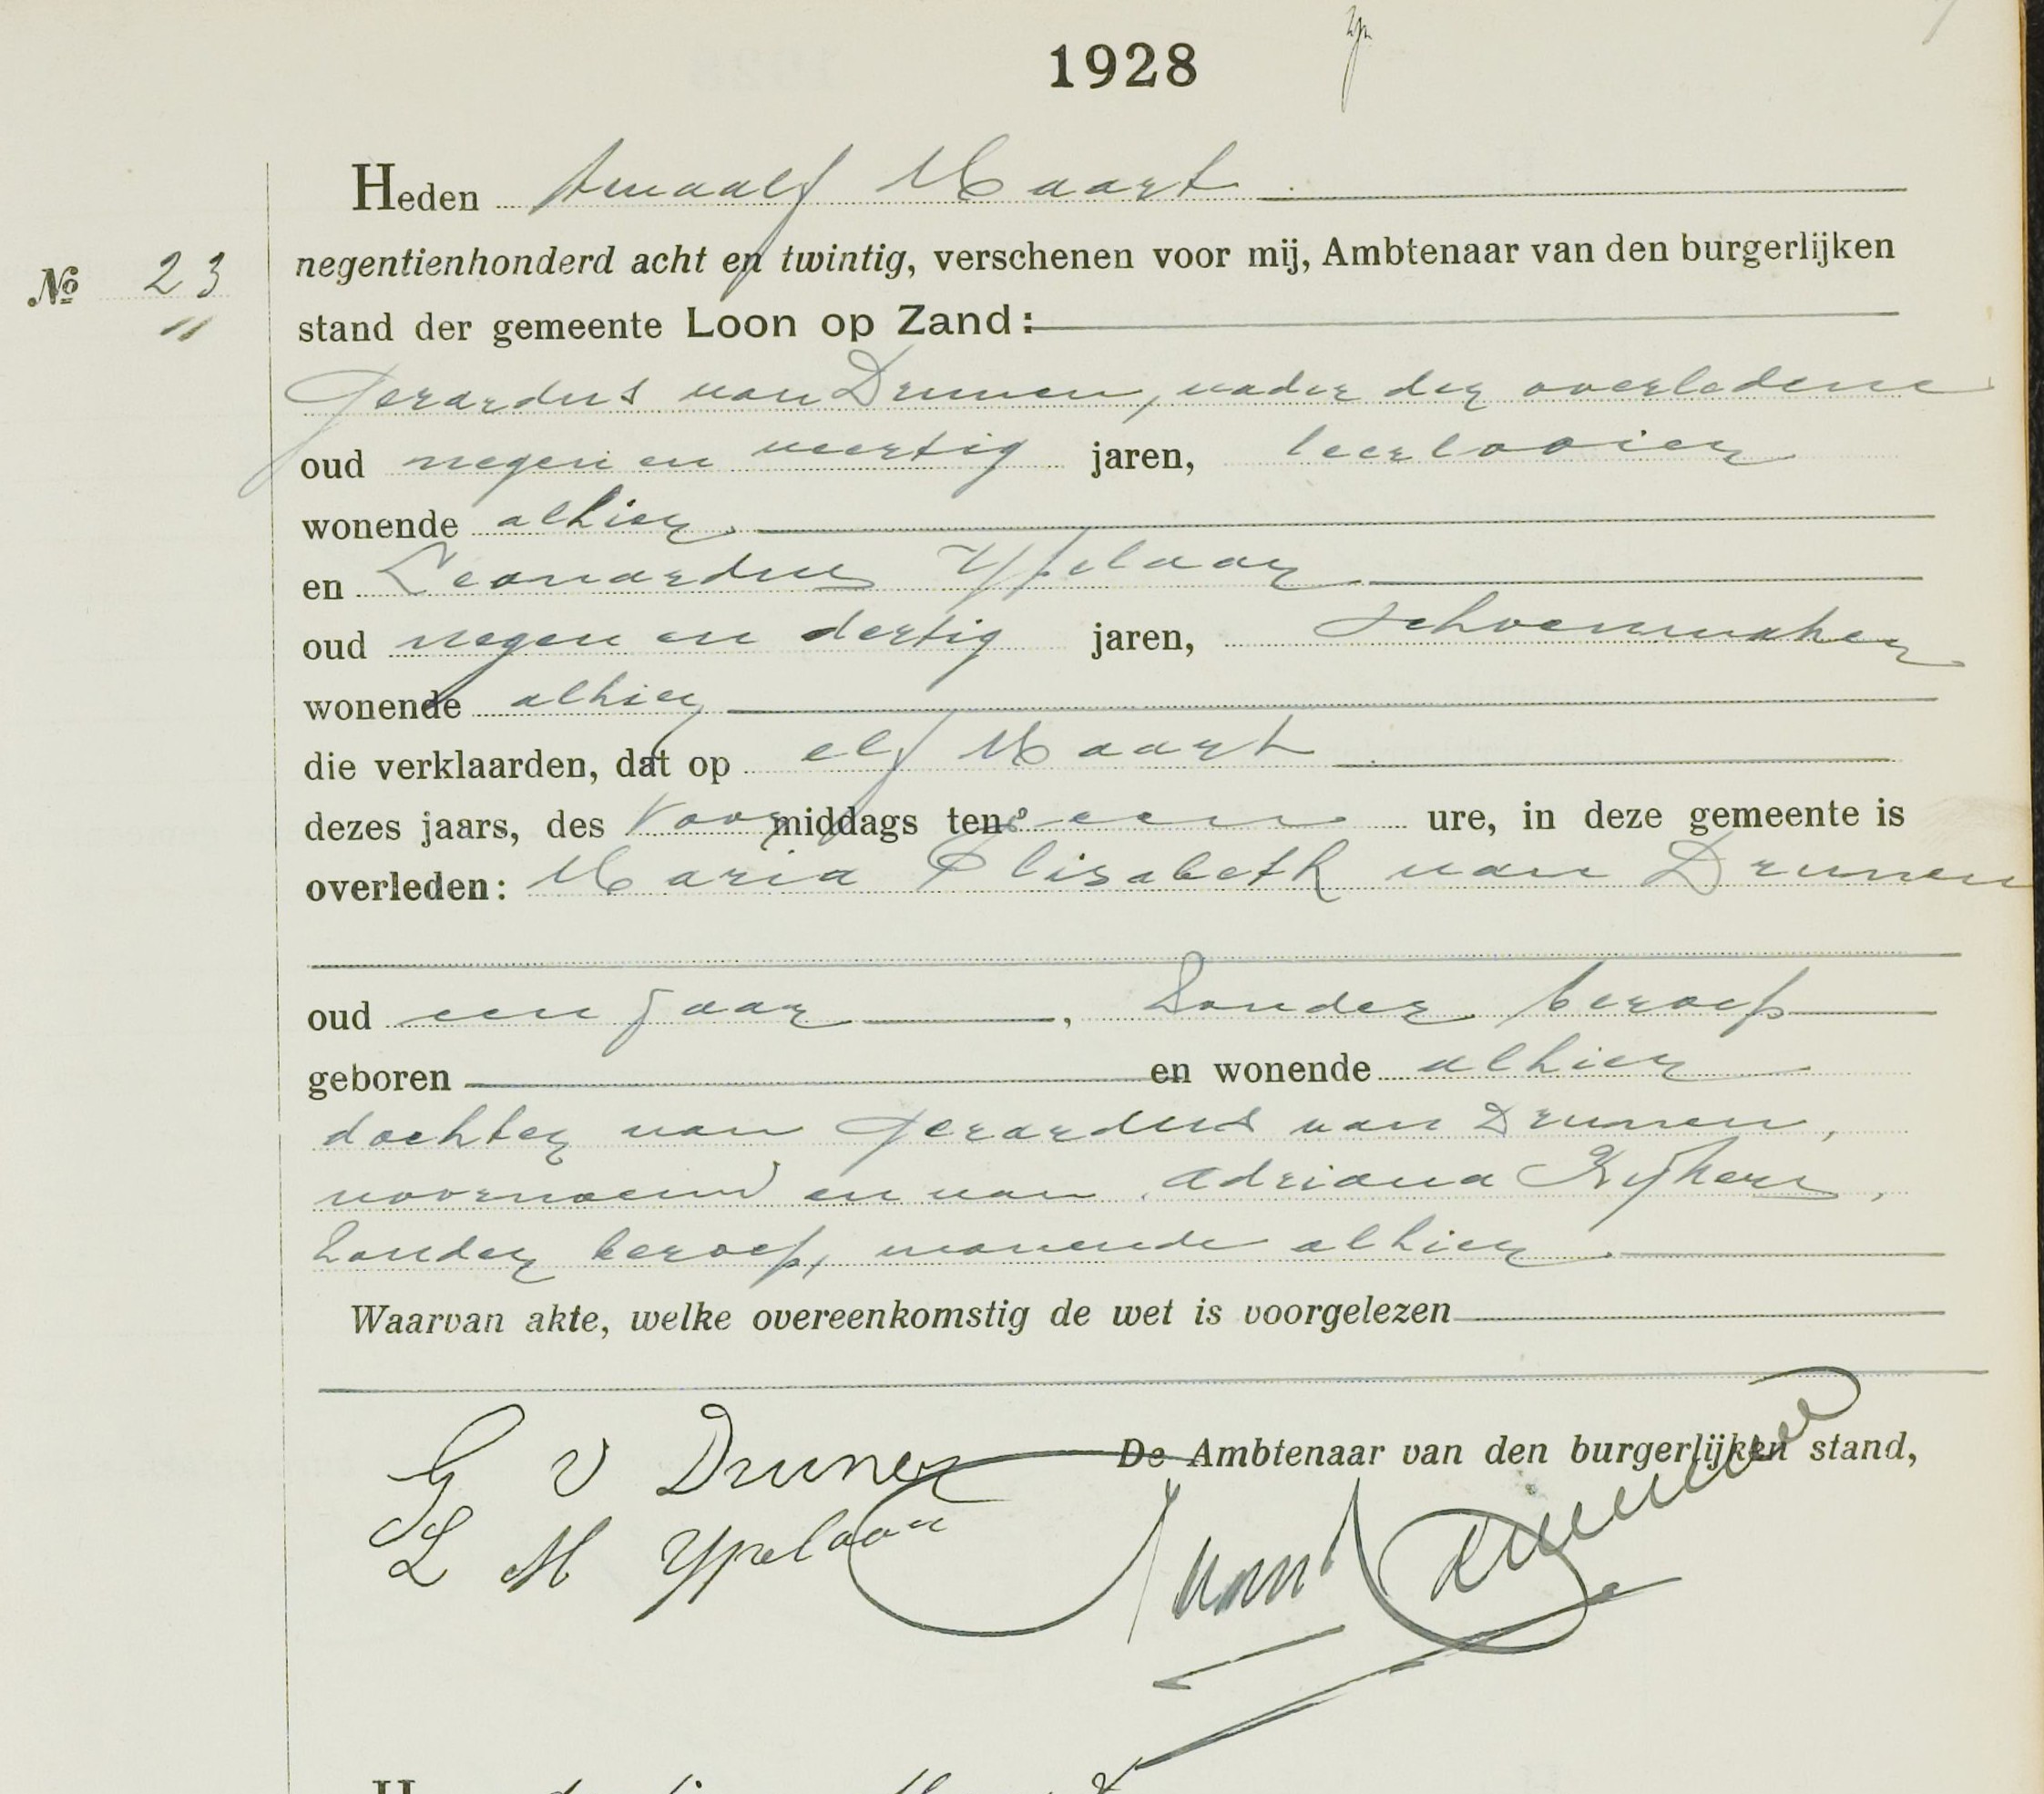 1928
Heden twaalf Maart
negentienhonderd acht en twintig, verschenen voor mij, Ambtenaar van den burgerlijken
№ 23
stand der gemeente Loon op Zand:
Gerardus van Drunen, vader der overledene
oud negen en veertig jaren, leerlooier
wonende alhier
en Leonardus Ypelaar
oud negen en dertig jaren, schoenmaker
wonende alhier
die verklaarden, dat op elf Maart
dezes jaars, des voormiddags ten een ure, in deze gemeente is
overleden: Maria Elisabeth van Drunen
oud een jaar, zonder beroep
geboren en wonende alhier
dochter van Gerardus van Drunen,
voornoemd en van Adriana Kijkers,
zonder beroep, wonende alhier.
Waarvan akte, welke overeenkomstig de wet is voorgelezen
De Ambtenaar van den burgerlijken stand,
G v Drunen
L M Ypelaar